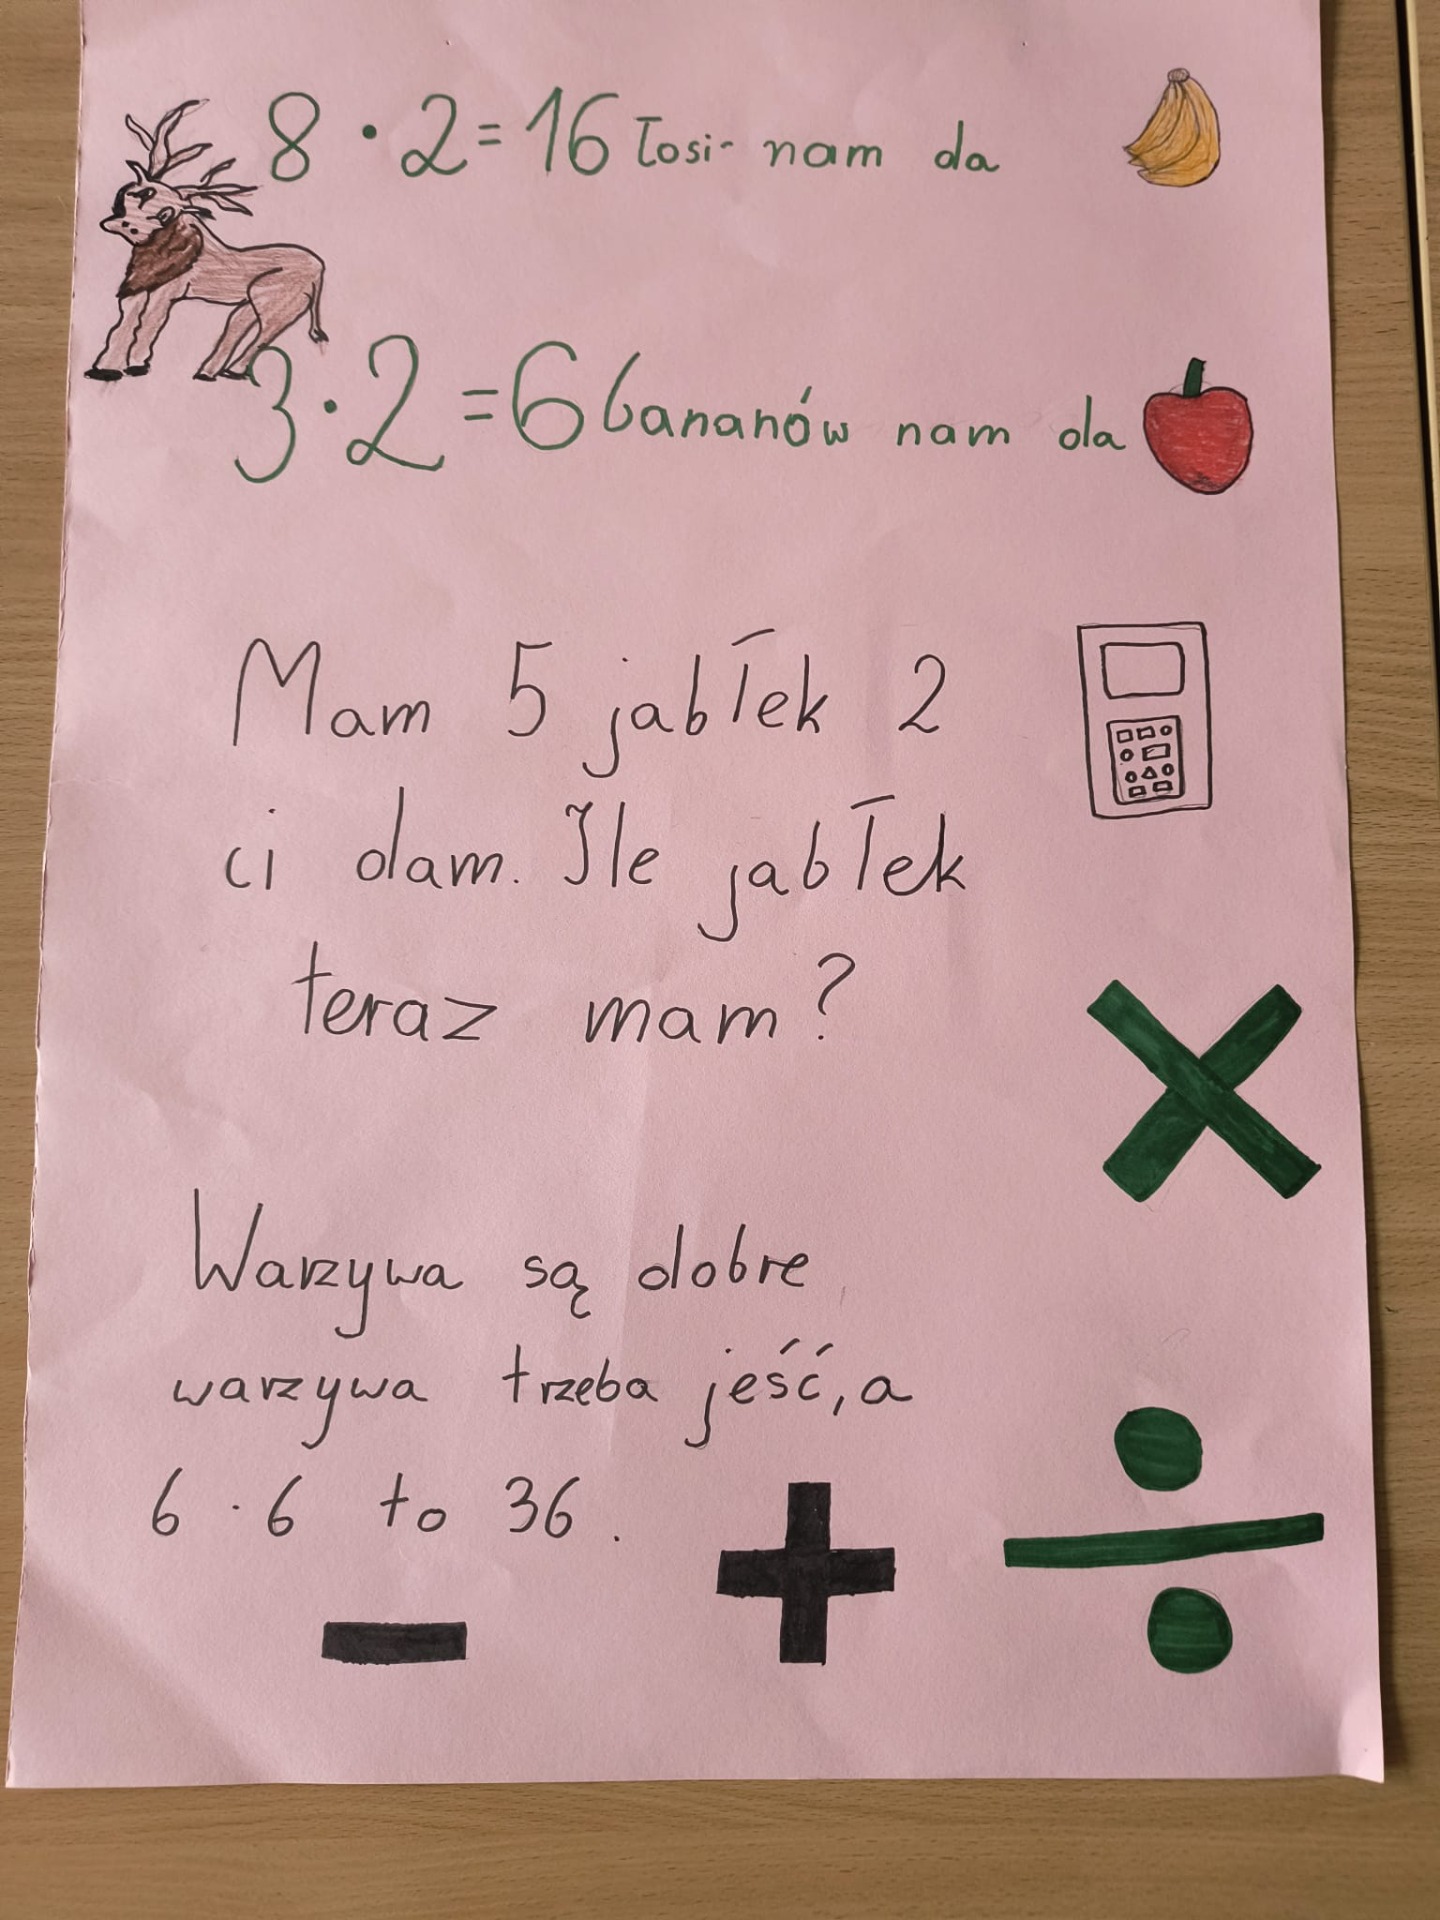 8 · 2 = 16 łosi- nam da
3 · 2 = 6 bananów nam da
Mam 5 jabłek 2
ci dam. Ile jabłek
teraz mam?
Warzywa są dobre
warzywa trzeba jeść, a
6 · 6 to 36.